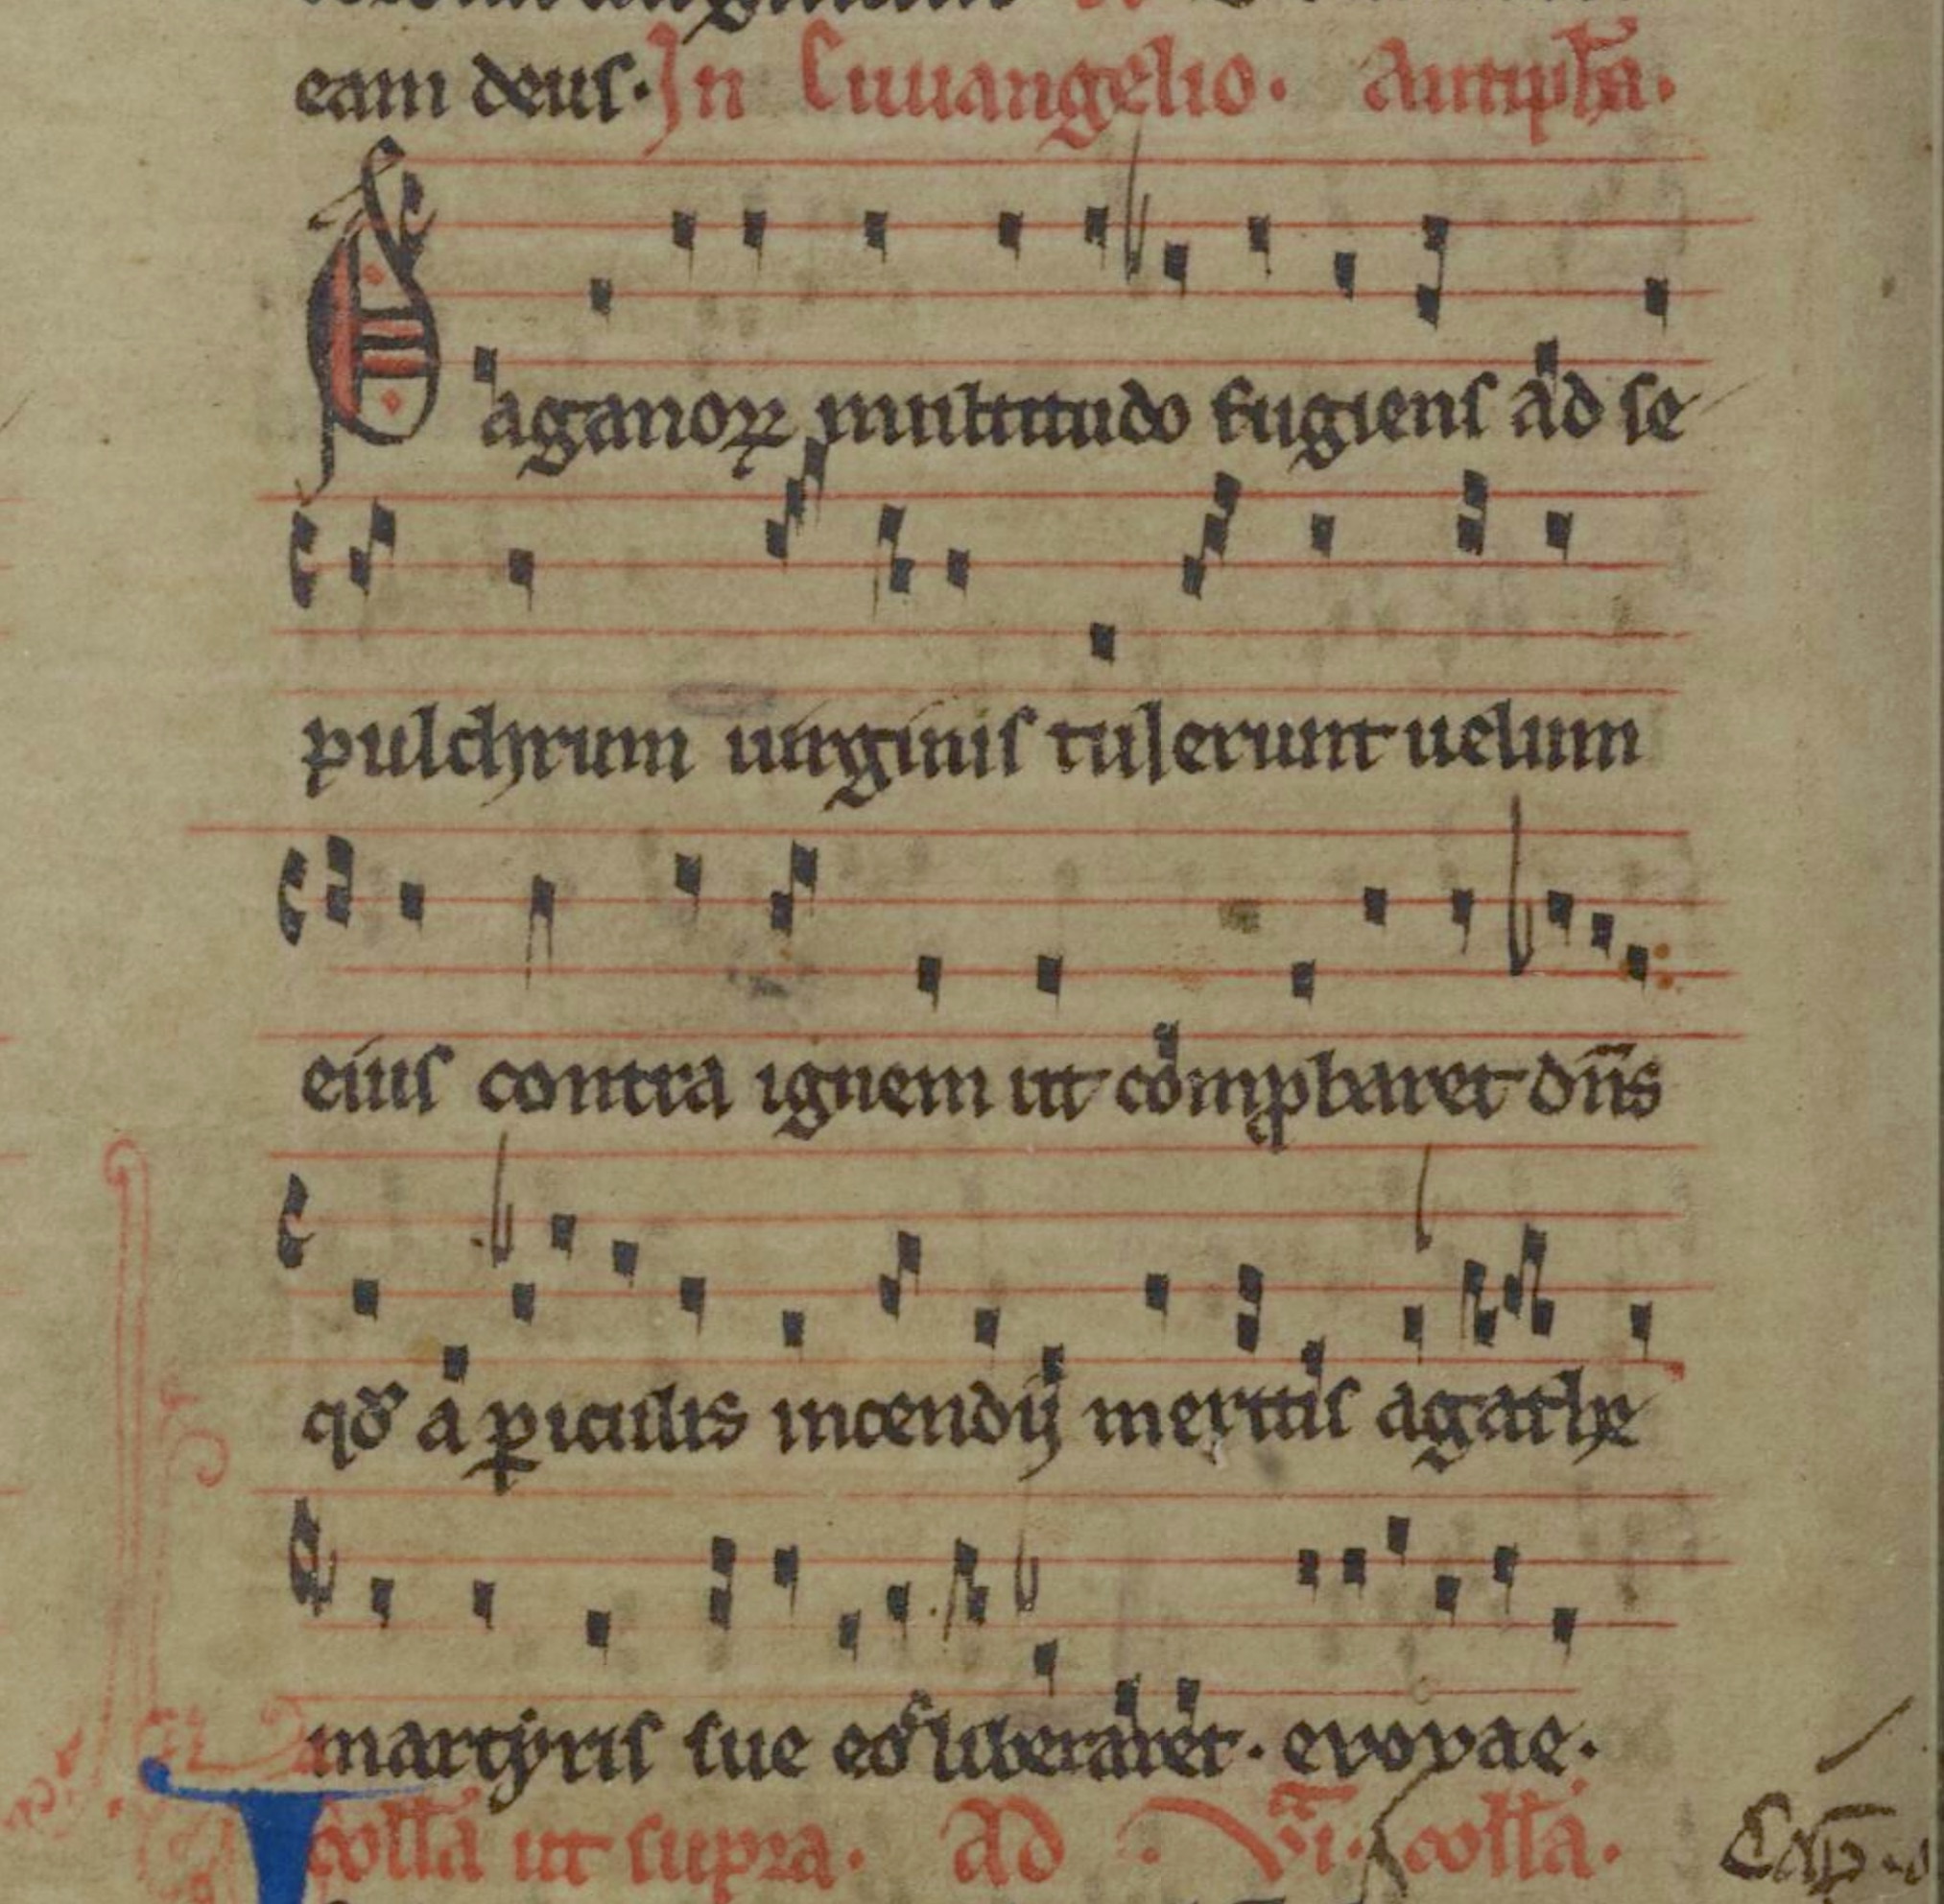 eam deus. In Euuangelio. Antiph̃a.
Paganoꝝ multitudo fugiens ad se
pulchrum uirginis tulerunt uelum
eius contra ignem ut comꝓbaret dñs
qđ a ꝑiculis incendij meritis agathe
martyris sue eos liberaret. evovae.
coll̃a ut supra. Ad .VI. coll̃a.
Cap̃.